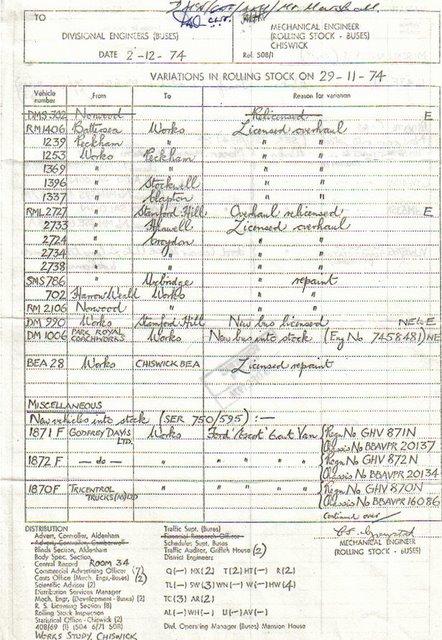 TO
DIVISIONAL ENGINEERS (BUSES)
DATE 2-12-74
MECHANICAL ENGINEER
(ROLLING STOCK - BUSES)
CHISWICK
Ref. 508/1
VARIATIONS IN ROLLING STOCK ON 29-11-74
Vehicle number From To Reason for variation
DMS 302 Norwood Relicensed E
RM 1406 Battersea Works Licensed overhaul
1239 Peckham " " "
1253 Works Peckham " "
1369 " " " "
1396 " Stockwell " "
1337 " Clapton " "
RML 2727 " Stamford Hill Overhaul relicensed E
2733 " Hanwell Licensed overhaul
2724 " Croydon " "
2734 " " " "
2738 " " " "
SMS 786 " Uxbridge " repaint
702 Harrow Weald Works " "
RM 2106 Norwood " " "
DM 990 Works Stamford Hill New bus licensed NE & E
DM 1006 PARK ROYAL COACHWORKS Works New bus into stock (Eng No 7458481) NE
BEA 28 Works CHISWICK BEA Licensed repaint
MISCELLANEOUS
New vehicles into stock (SER 750/595) :—
1871 F GODFREY DAVIS LTD. Works Ford 'Escot' 6cwt Van { Regn No GHV 871N
Chassis No BBAVPR 20137
1872 F — do — " " " " " { Regn No GHV 872N
Chassis No BBAVPR 20134
1870 F TRICENTROL TRUCKS " " " " " { Regn No GHV 870N
Chassis No BBAVPR 16086
Continued over
MECHANICAL ENGINEER
(ROLLING STOCK - BUSES)
DISTRIBUTION
Advert, Controller, Aldenham
Advert, Controller, Camberwell
Blinds Section, Aldenham
Body Spec. Section
Central Record ROOM 34
Commercial Advertising Officer (7)
Costs Office (Mech. Engr. Buses) (2)
Scientific Adviser (2)
Distribution Services Manager
Mech. Engr. (Development - Buses) (2)
R. S. Licensing Section (8)
Rolling Stock Inspection
Statistical Office - Chiswick (2)
408/69 (1) 504 6/71 508)
WORKS STUDY, CHISWICK
Traffic Supt. (Buses)
Financial Research Officer
Schedules Supt. Buses
Traffic Auditor, Griffith House (2)
District Engineers
Q(—) HX(2) T(2) HT(—) R(2)
TL(—) SW(3) WN(—) W(—) HW(4)
TC(3) AR(2)
AL(—) WH(—) U(—) AV(—)
Divl. Operating Manager (Buses) Mansion House